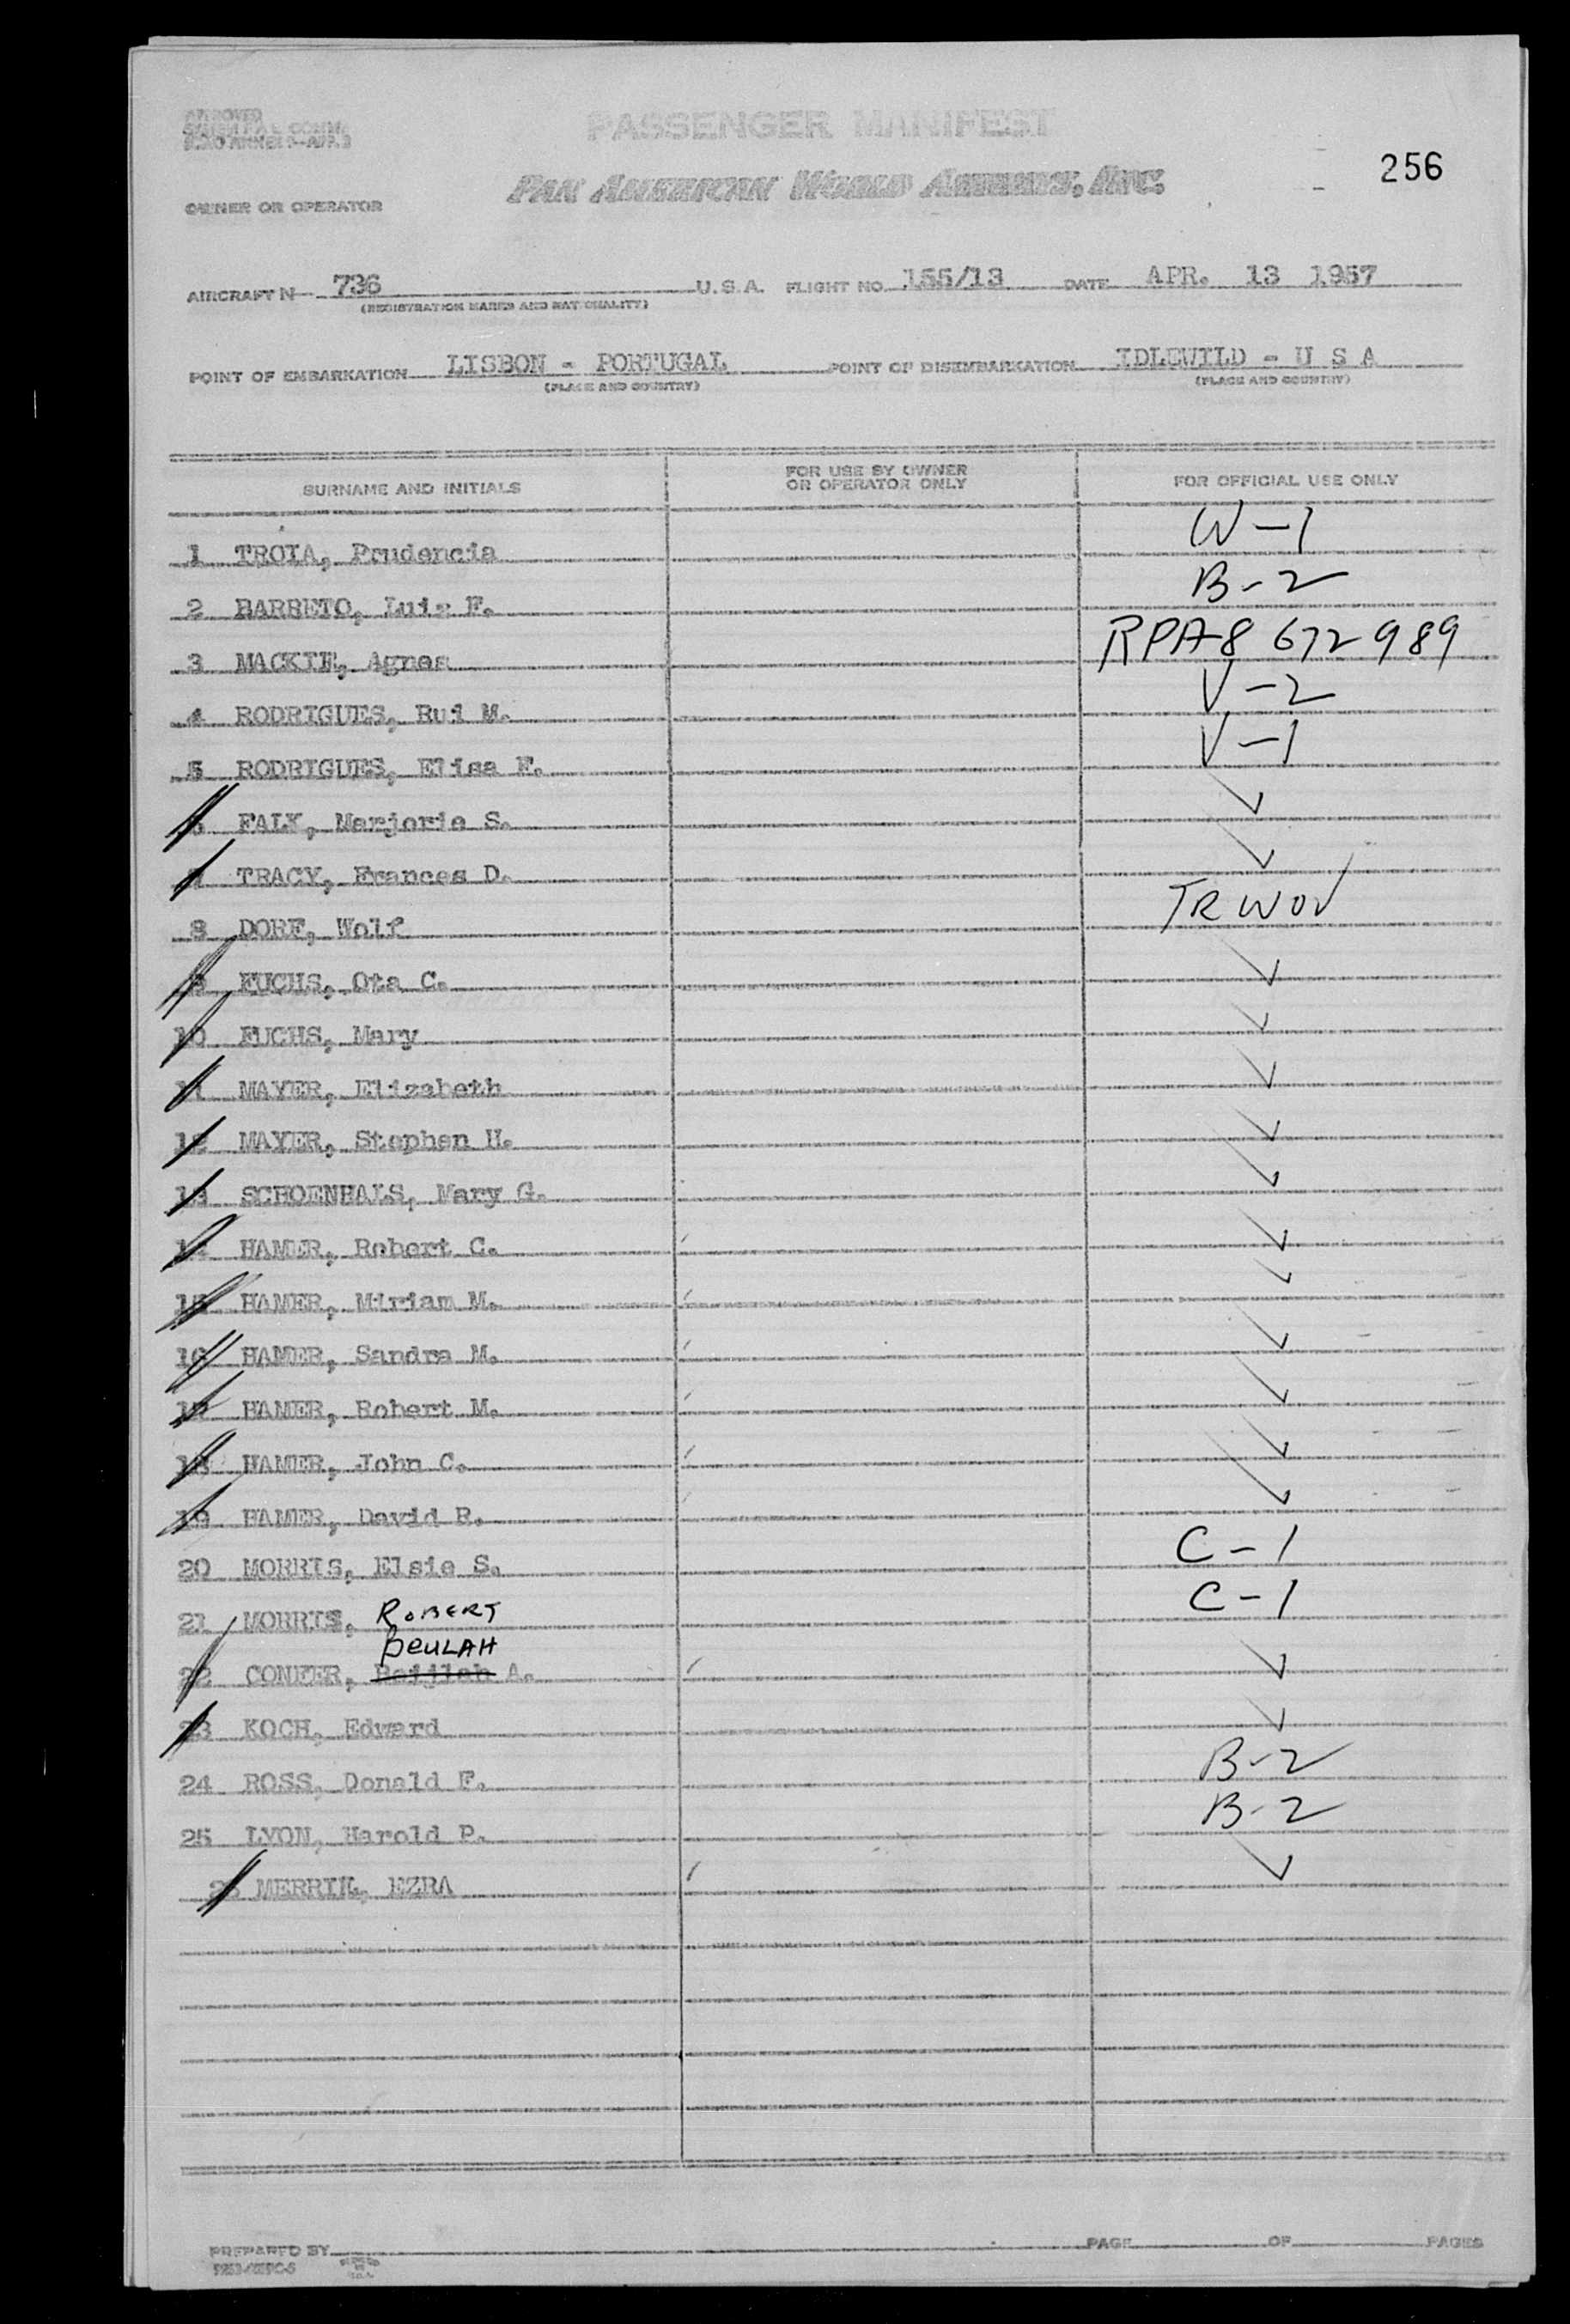 APPROVED
PASSENGER MANIFEST
256
PAN AMERICAN WORLD AIRWAYS, INC.
OWNER OR OPERATOR
AIRCRAFT N 736 U.S.A. FLIGHT NO. 155/13 DATE APR. 13 1957
(REGISTRATION MARKS AND NATIONALITY)
POINT OF EMBARKATION LISBON - PORTUGAL POINT OF DISEMBARKATION IDLEWILD - U S A
(PLACE AND COUNTRY) (PLACE AND COUNTRY)
SURNAME AND INITIALS FOR USE BY OWNER OR OPERATOR ONLY FOR OFFICIAL USE ONLY
1 TROIA, Prudencia W-1
2 BARRETO, Luiz F. B-2
3 MACKIE, Agnes RPA-8 672 989
4 RODRIGUES, Rui M. V-2
5 RODRIGUES, Elisa F. V-1
6 FALK, Marjorie S. ✓
7 TRACY, Frances D. ✓
8 DORF, Wolf TRWOV
9 FUCHS, Ota C. ✓
10 FUCHS, Mary ✓
11 MAYER, Elizabeth ✓
12 MAYER, Stephen H. ✓
13 SCHOENHALS, Mary G. ✓
14 HAMER, Robert C. ✓
15 HAMER, Miriam M. ✓
16 HAMER, Sandra M. ✓
17 HAMER, Robert M. ✓
18 HAMER, John C. ✓
19 HAMER, David R. ✓
20 MORRIS, Elsie S. C-1
21 MORRIS, ROBERT C-1
BEULAH
22 CONFER, A. ✓
23 KOCH, Edward ✓
24 ROSS, Donald F. B-2
25 LYON, Harold P. B-2
26 MERRILL, EZRA ✓
PREPARED BY PAGE OF PAGES